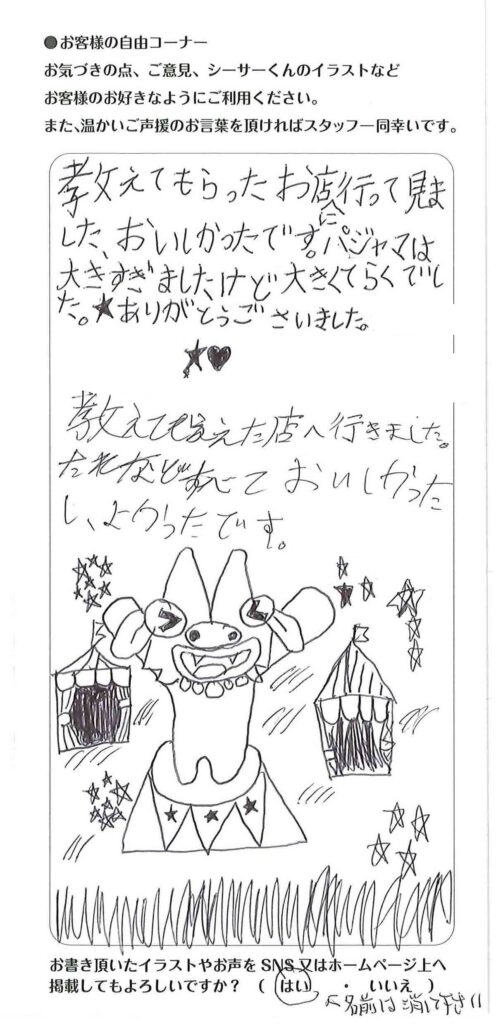 ●お客様の自由コーナー
お気づきの点、ご意見、シーサーくんのイラストなど
お客様のお好きなようにご利用ください。
また、温かいご声援のお言葉を頂ければスタッフ一同幸いです。
教えてもらったお店に行って見ま
した、おいしかったです。パジャマは
大きすぎましたけど大きくてらくでし
た。★ありがとうございました。
★♥
教えて貰えた店へ行きました。
たれなどすべておいしかった
し、よかったです。
お書き頂いたイラストやお声を SNS 又はホームページ上へ
掲載してもよろしいですか？ （ はい ・ いいえ ）
名前は消して下さい